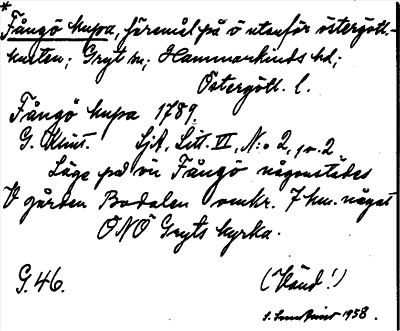 *
Fångö kupa, föremål på ö utanför östergöt-
kusten; Gryt sn; Hammarkinds hd;
Östergötl. l.
Fångö kupa 1789.
G. Klint. Sjöt. Litt. VI, N:o 2, 
Läge på ön Fångö någonstädes
V gården Bodalen omkr. 7 km. något
ONO Gryts kyrka.
G. 46. (Vänd!)
1958.